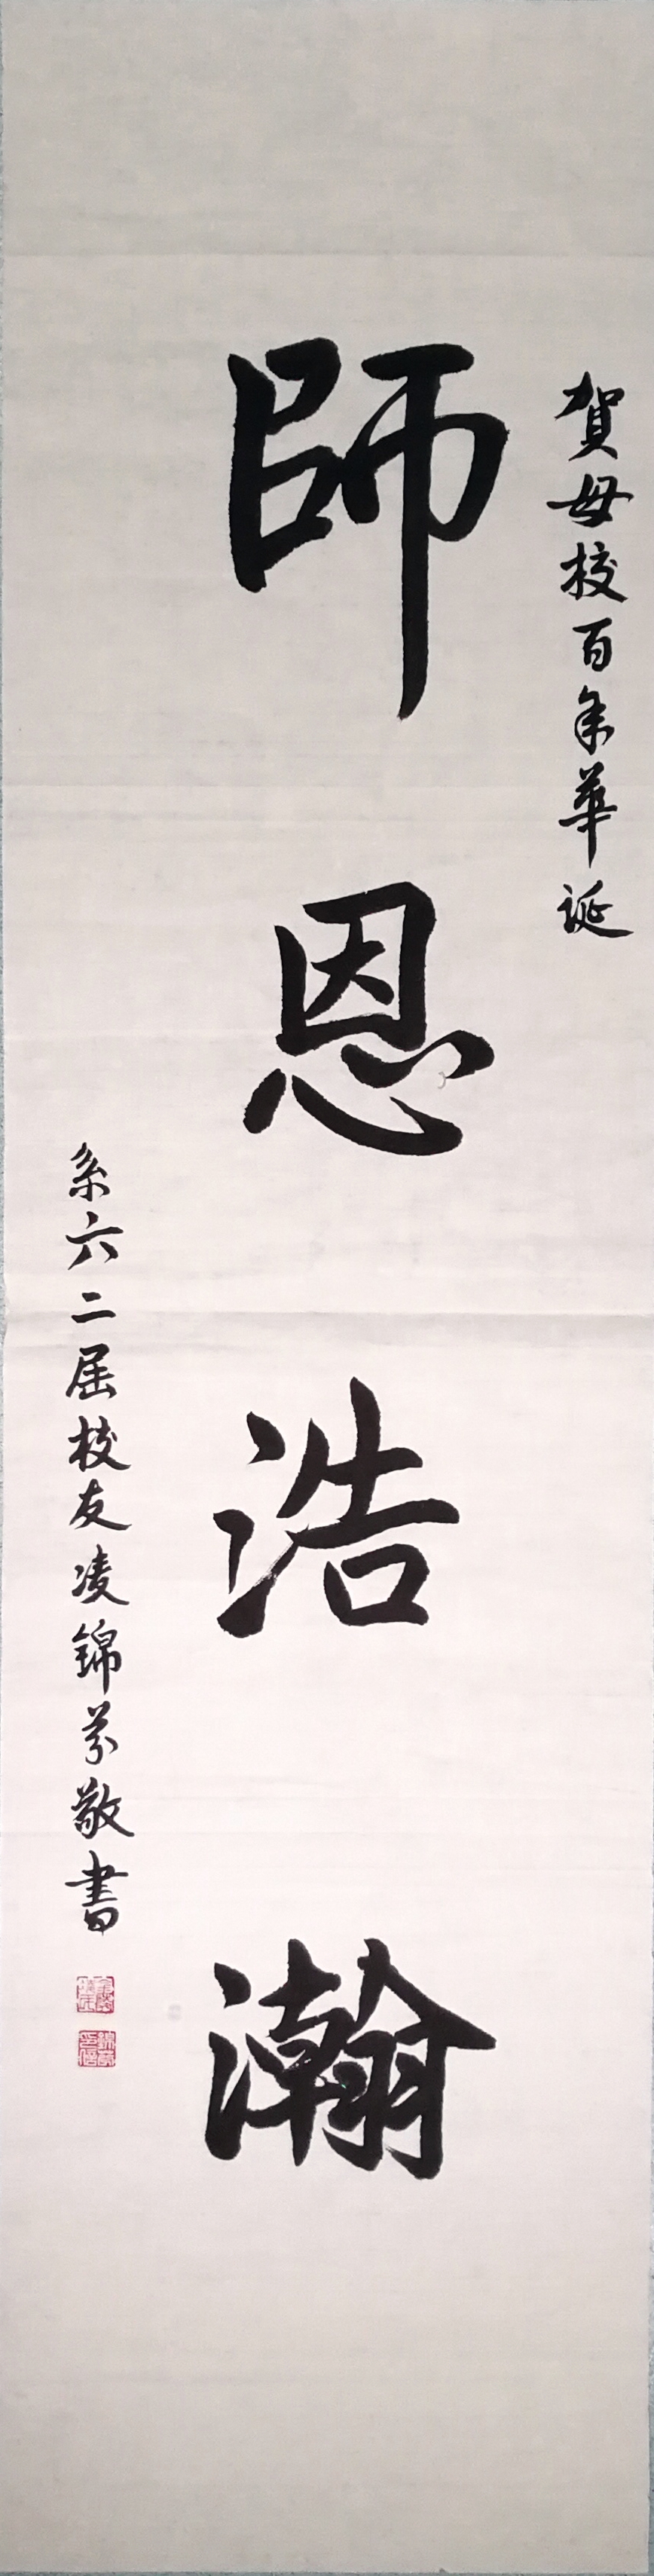 賀母校百年華誕
師恩浩瀚
系六二屆校友凌錦芬敬書